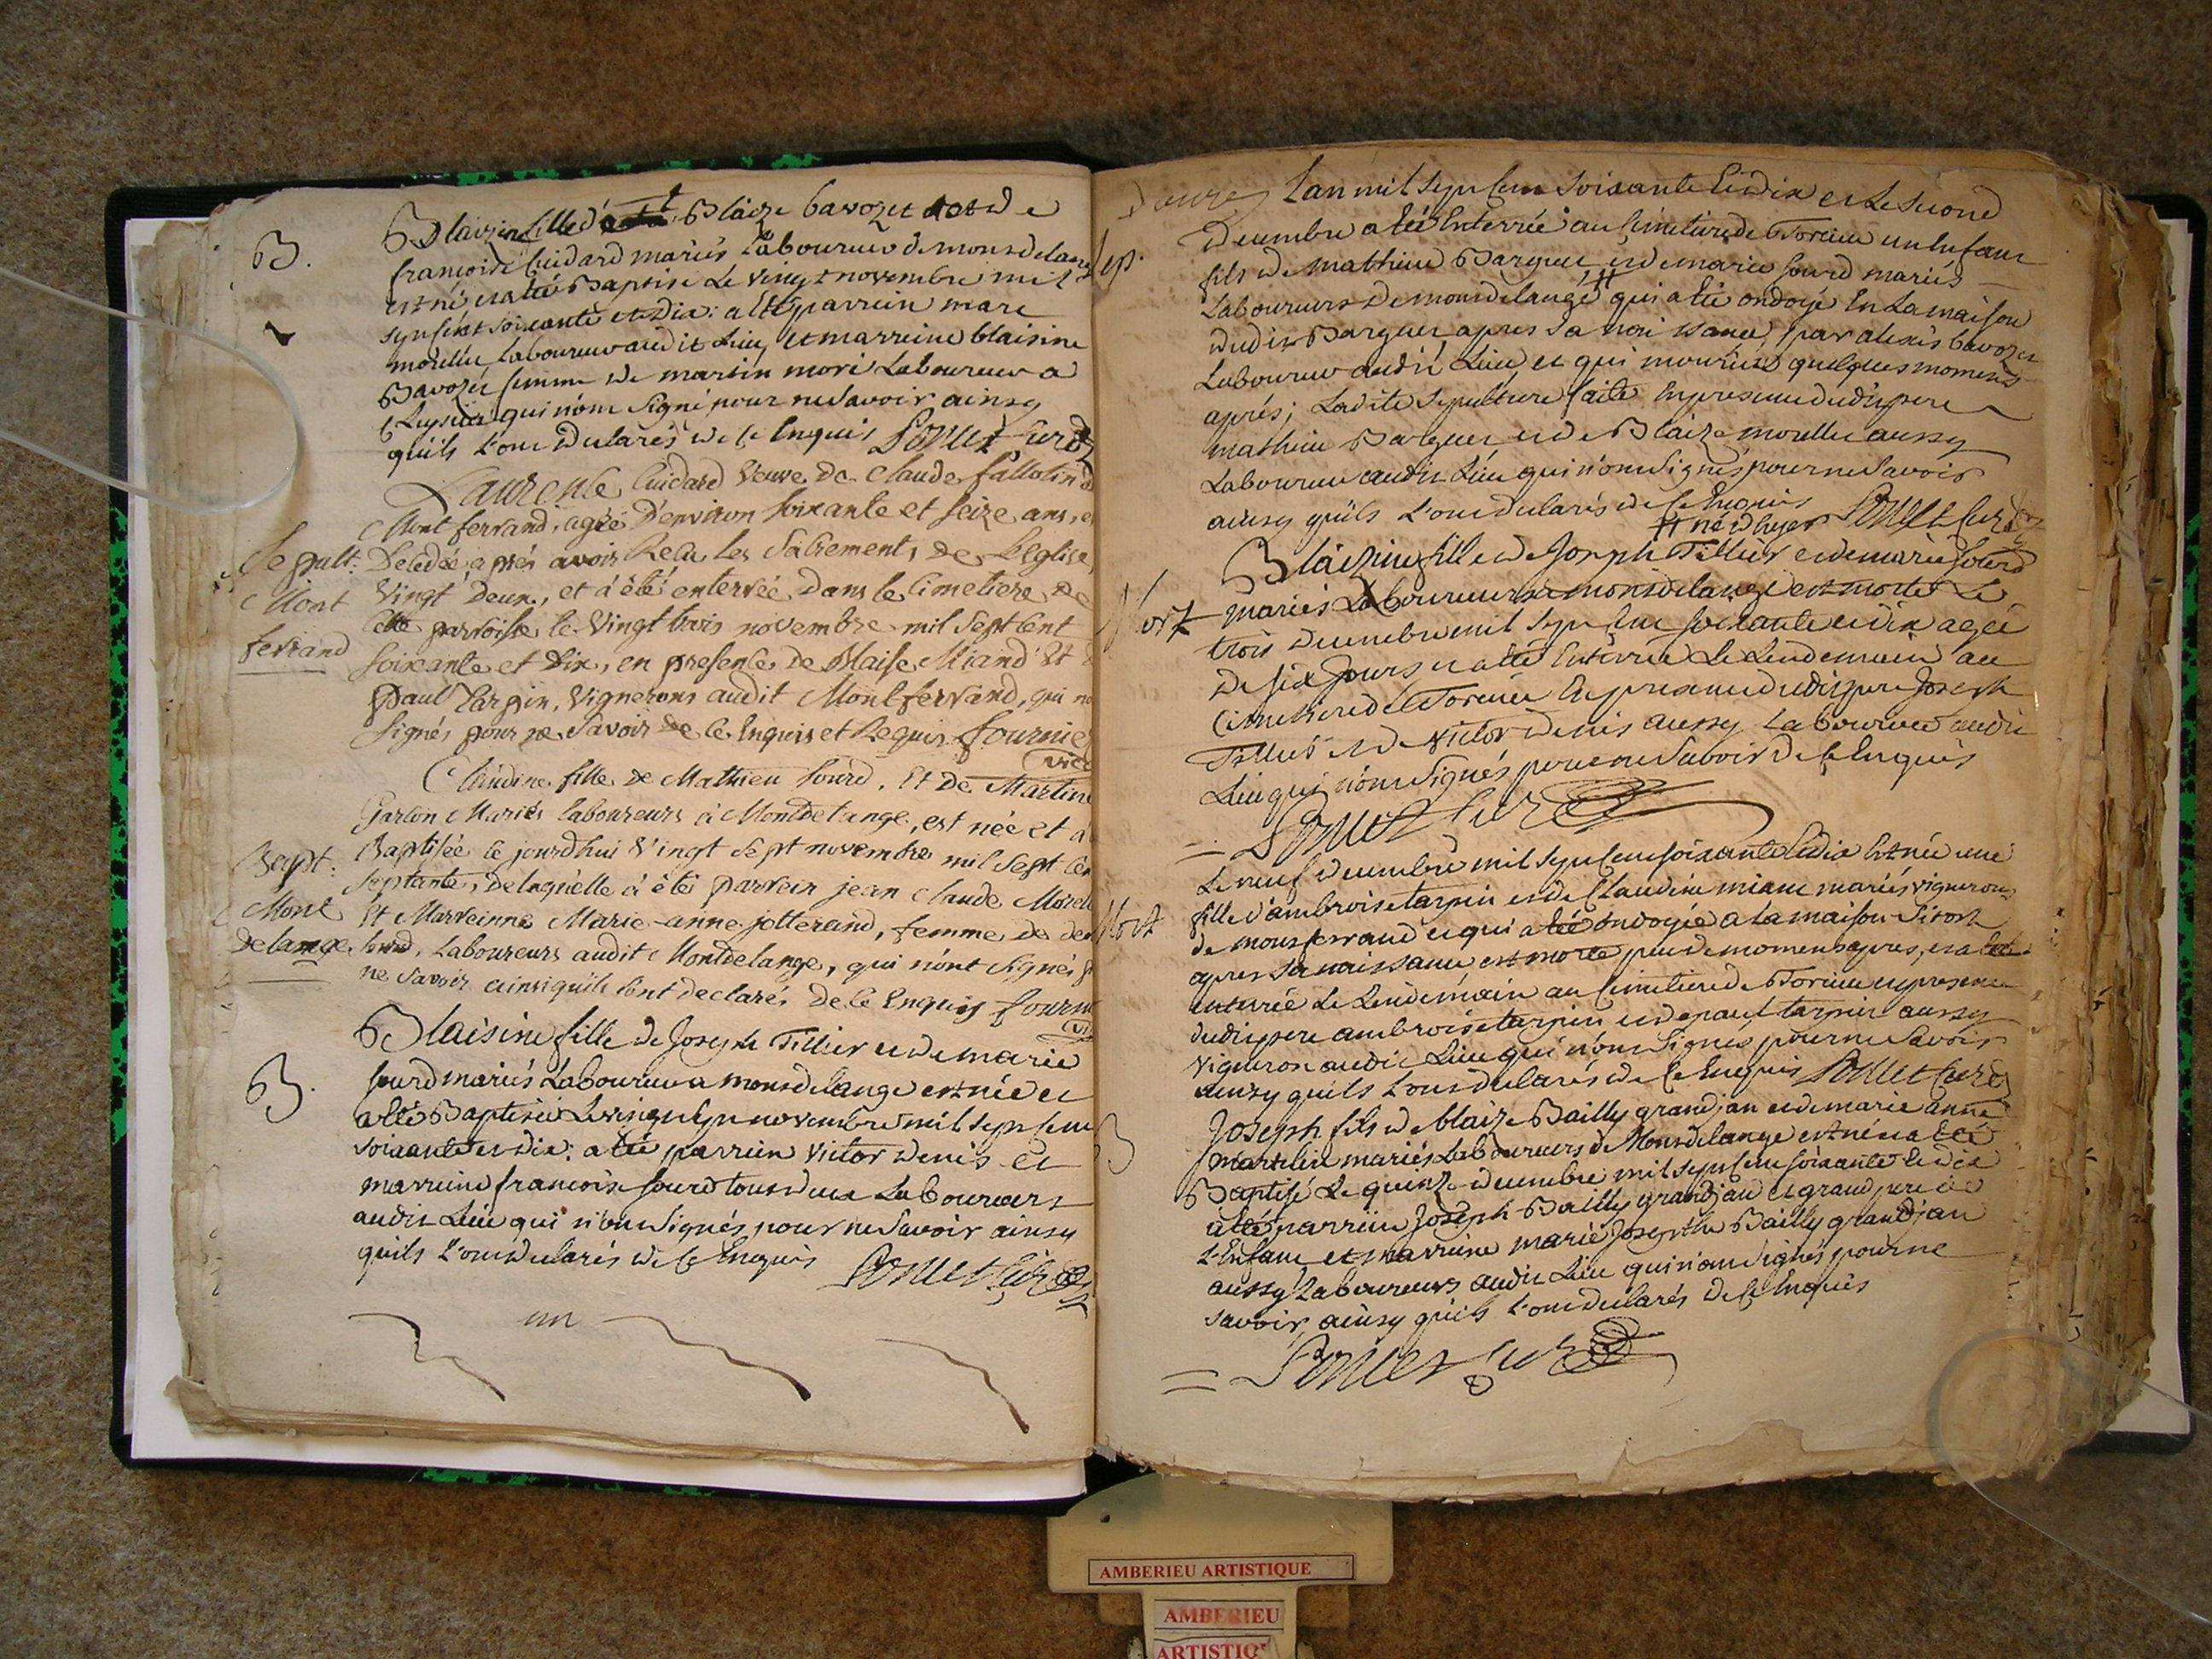 B.
Blaizine fille d' Blaize bavozet et de
françoise Cuidard mariés Laboureurs de montdelange
est né et a été Baptisé Le vingt novembre mil
sept cent soixante et dix: a été parrein marc
morellu Laboureur audit Lieu, et marreine blaisine
Bavozet femme de martin Laboureur a
qui n'ont signé pour ne savoir ainsy
qu'ils l'ont declarés de ce Enquis Sonnet Curé
Sepult:
Mont
ferrand
Laurence Cuidard Veuve de Claude fallotin
Mont ferrand, agée D'environ soixante et seize ans,
Decedée après avoir Recu les Sacrements, de l'Eglise,
Vingt Deux, et a été enterrée Dans le Cimetiere de
Cette parroisse le Vingt trois novembre mil Sept Cent
soixante et Dix, en presence de Blaise Miand Et
Paul Tarpin, Vignerons audit Montferrand, qui
Signés pour ne Savoir de ce Enquis et Requis fournier
vic
Bapt:
Mont
delange
Claudine fille de Mathieu Sourd, Et De Martine
Garlon Mariés laboureurs à Montdelange, est née et a
Baptisée ce jourdhui Vingt Sept novembre mil Sept Cent
Septante, de laquelle a été parrein jean Claude Morel
Et Marreinne Marie-anne jolterand, femme de
Sourd, Laboureurs audit Montdelange, qui n'ont signés
ne Savoir ainsi quils lont declarés De ce Enquis fourn
B.
Blaisine fille de Joseph Tillier et de marie
sourd mariés Laboureurs a montdelange est née et
a été Baptisée Le vingt sept novembre mil sept cent
soixante et dix: a été parrein victor denis et
marreine francoise sourd tous deux Laboureurs
audit Lieu qui n'ont signés pour ne savoir ainsy
quils l'ont declarés de ce Enquis Sonnet Curé
Sep.
Lan mil sept cent soixante et dix et Le second
decembre a été Enterrée au Cimetiere de Torcieu un Enfant
fils de mathieu Barquet et de marie sourd mariés
Laboureurs de montdelange # qui a été ondoyé En La maison
dudit Barquet apres sa naissance, par alexis bavozet
Laboureur audit Lieu, et qui mourut quelques moments
après; Ladite sepulture faite En presence dudit pere
mathieu Barquet et de Blaize morellu aussy
Laboureur audit Lieu qui n'ont signés pour ne savoir
ainsy qu'ils l'ont declarés de ce Enquis
# né d'hyer Sonnet Curé
Mort
Blaizine fille de Joseph Tillier et de marie sourd
mariés Laboureurs a montdelange est morte Le
trois decembre mil sept cent soixante et dix agée
de six jours et a été Enterrée Le Lendemain au
Cimetiere de Torcieu En presence dudit pere Joseph
Tillier et de victor denis aussy Laboureur audit
Lieu qui n'ont signés pour ne savoir de ce Enquis
Sonnet Curé
Mort
Le neuf decembre mil sept cent soixante et dix Est née une
fille d'ambroise tarpin et de Claudine miand mariés vignerons
de montferrand et qui a été ondoyée a La maison sitost
apres sa naissance est morte peu de moments apres, et a été
enterrée Le Lendemain au Cimetiere de Torcieu en presence
dudit pere ambroise tarpin et de paul tarpin aussy
Vigneron audit Lieu qui n'ont signés pour ne savoir
ainsy quils l'ont declarés de ce Enquis Sonnet Curé
B
Joseph fils de blaize Bailly grandjan et de marie anne
martelin mariés Laboureurs de Montdelange est né et a été
Baptisé Le quinze decembre mil sept cent soixante et dix
a été parrein Joseph Bailly grandjan et grand pere de
L'Enfant et marreine marie Josephte Bailly grandjan
aussy Laboureurs audit Lieu qui n'ont signés pour ne
savoir, ainsy qu'ils l'ont declarés de ce Enquis
Sonnet Curé
AMBERIEU ARTISTIQUE
AMBERIEU
ARTISTIQ